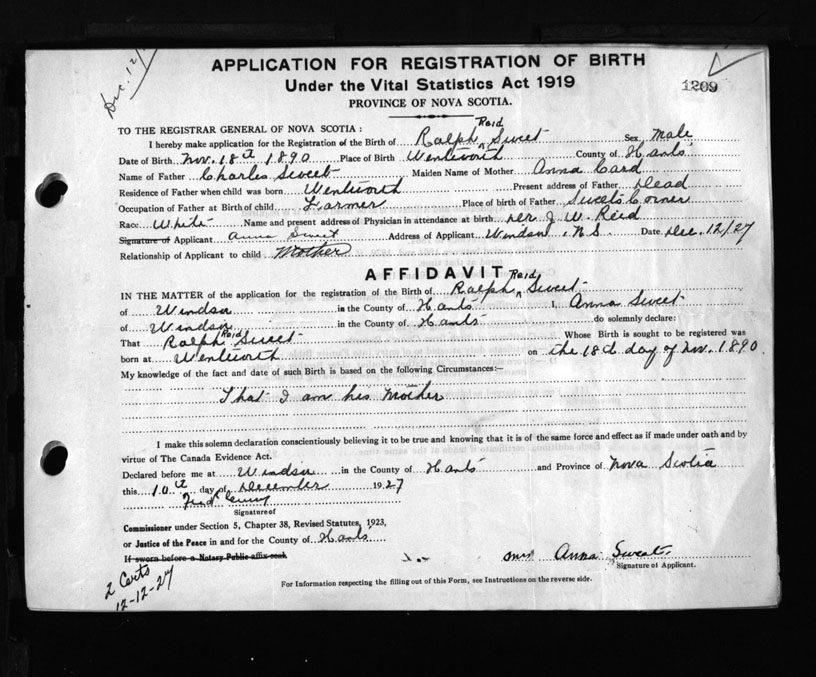 Dec. 12/
APPLICATION FOR REGISTRATION OF BIRTH
Under the Vital Statistics Act 1919
1209
PROVINCE OF NOVA SCOTIA.
TO THE REGISTRAR GENERAL OF NOVA SCOTIA:
I hereby make application for the Registration of the Birth of Ralph Reid Sweet Sex Male
Date of Birth Nov. 18th 1890 Place of Birth Wentworth County of Hants
Name of Father Charles Sweet Maiden Name of Mother Anna Card
Residence of Father when child was born Wentworth Present address of Father Dead
Occupation of Father at Birth of child Farmer Place of birth of Father Sweets Corner
Race White Name and present address of Physician in attendance at birth Der J. W. Reid
Signature of Applicant Anna Sweet Address of Applicant Windsor N.S. Date Dec. 12/27
Relationship of Applicant to child Mother
AFFIDAVIT
IN THE MATTER of the application for the registration of the Birth of Ralph Reid Sweet
of Windsor in the County of Hants I, Anna Sweet
of Windsor in the County of Hants do solemnly declare:
That Ralph Reid Sweet Whose Birth is sought to be registered was
born at Wentworth on the 18th day of Nov. 1890.
My knowledge of the fact and date of such Birth is based on the following Circumstances:—
That I am his Mother
I make this solemn declaration conscientiously believing it to be true and knowing that it is of the same force and effect as if made under oath and by
virtue of The Canada Evidence Act.
Declared before me at Windsor in the County of Hants and Province of Nova Scotia
this 10th day of December 1927
Fred
Signature of
Commissioner under Section 5, Chapter 38, Revised Statutes, 1923,
or Justice of the Peace in and for the County of Hants
If sworn before a Notary Public affix seal
Mrs Anna Sweet
Signature of Applicant.
2 Certs
12-12-27
For Information respecting the filling out of this Form, see Instructions on the reverse side.